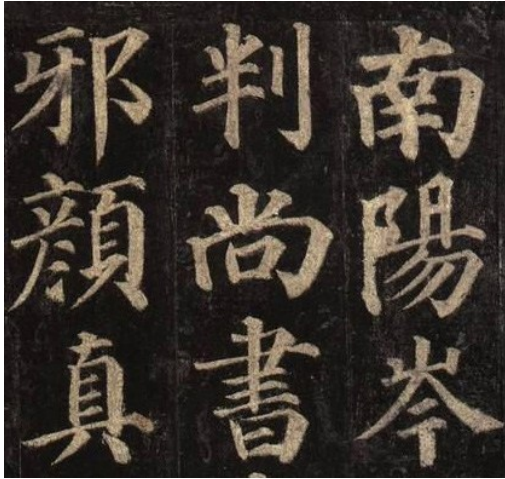 南陽岑
判尚書
邪顔真